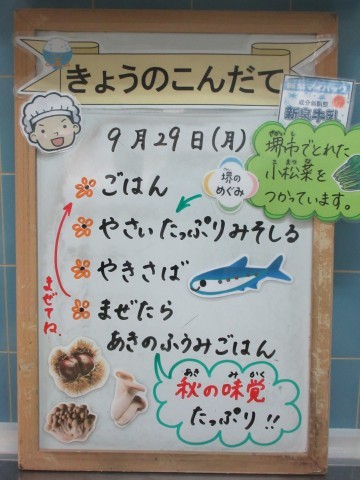 きょうのこんだて
9月29日(月)
ごはん
堺の
めぐみ
堺市でとれた
さかいし
小松菜を
こまつな
つかっています。
やさいたっぷりみそしる
やきさば
まぜたら
あきのふうみごはん
まぜてね
あき みかく
秋の味覚
たっぷり!!